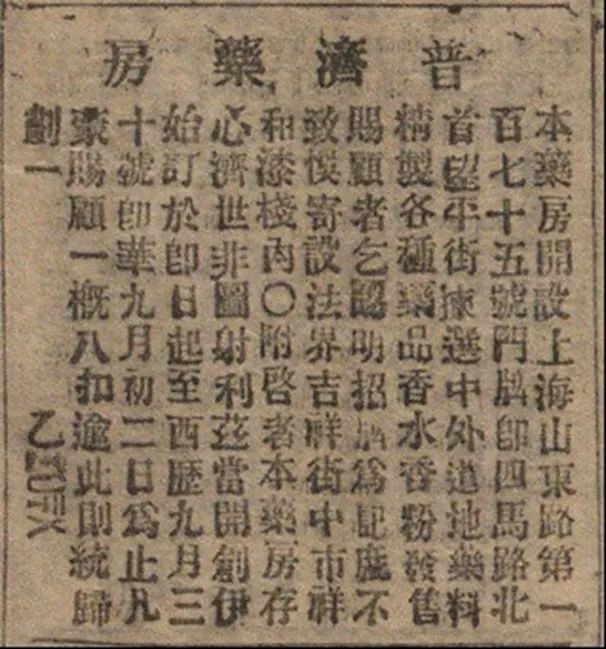 普濟藥房
本藥房開設上海山東路第一
百七十五號門牌即四馬路北
首望平街揀選中外道地藥料
精製各種藥品香水香粉發售
賜顧者乞認明招牌為記庶不
致悞寄設法界吉祥街中市祥
和漆棧內〇附啓者本藥房存
心濟世非圖射利茲當開創伊
始訂於即日起至西歷九月三
十號即華九月初二日為止凡
蒙賜顧一概八扣逾此則統歸
劃一
乙